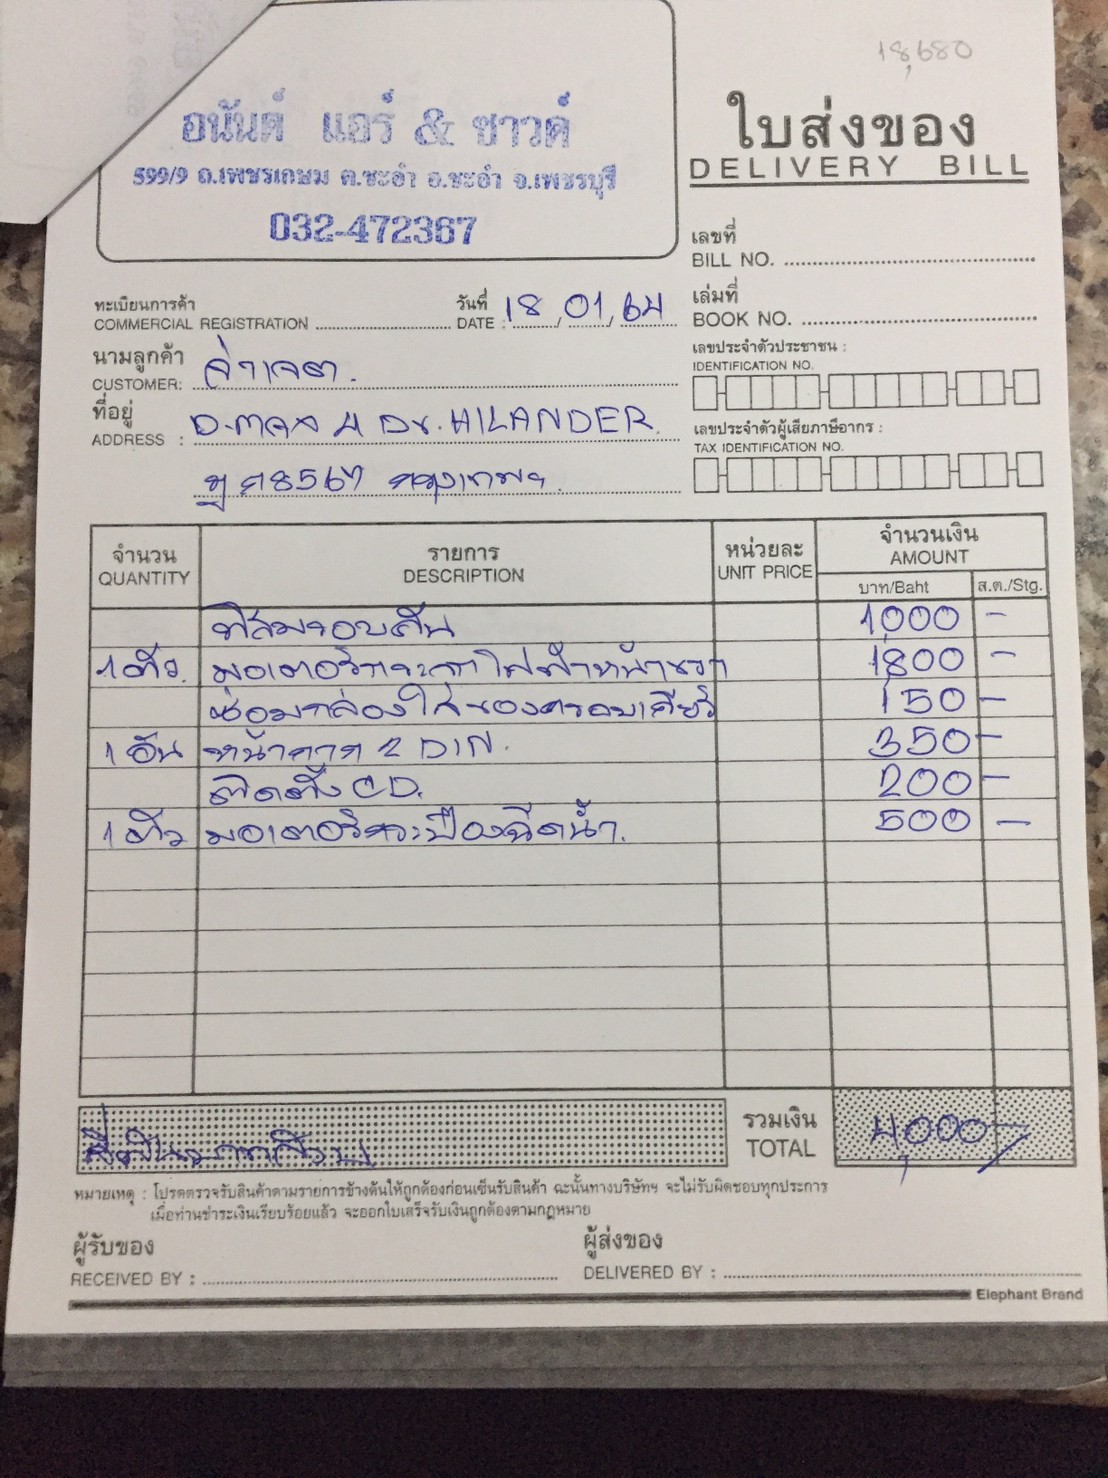 18,680
อนันต์ แอร์ & ซาวด์
599/9 ถ.เพชรเกษม ต.ชะอำ อ.ชะอำ จ.เพชรบุรี
032-472367
ใบส่งของ
DELIVERY BILL
เลขที่
BILL NO.
เล่มที่
BOOK NO.
ทะเบียนการค้า
COMMERCIAL REGISTRATION
วันที่
DATE : 18/01/64
นามลูกค้า
CUSTOMER: จ่าเจต.
ที่อยู่
ADDRESS : D-MAX 4 Dr. HILANDER.
8567 กรุงเทพฯ.
เลขประจำตัวประชาชน :
IDENTIFICATION NO.
เลขประจำตัวผู้เสียภาษีอากร :
TAX IDENTIFICATION NO.
จำนวน รายการ หน่วยละ จำนวนเงิน
QUANTITY DESCRIPTION UNIT PRICE AMOUNT
บาท/Baht ส.ต./Stg.
ฟิล์มรอบคัน 1000 -
1 ตัว. มอเตอร์กระจกไฟฟ้าหน้าขวา 1,800 -
ซ่อมกล่องใส่ของครอบเกียร์ 150 -
1 อัน หน้ากาก 2 DIN. 350 -
ติดตั้ง CD. 200 -
1 ตัว มอเตอร์กระป๋องฉีดน้ำ. 500 -
สี่พันบาทถ้วน
รวมเงิน
TOTAL 4,000 -
หมายเหตุ : โปรดตรวจรับสินค้าตามรายการข้างต้นให้ถูกต้องก่อนเซ็นรับสินค้า ฉะนั้นทางบริษัทฯ จะไม่รับผิดชอบทุกประการ
เมื่อท่านชำระเงินเรียบร้อยแล้ว จะออกใบเสร็จรับเงินถูกต้องตามกฎหมาย
ผู้รับของ
RECEIVED BY :
ผู้ส่งของ
DELIVERED BY :
Elephant Brand